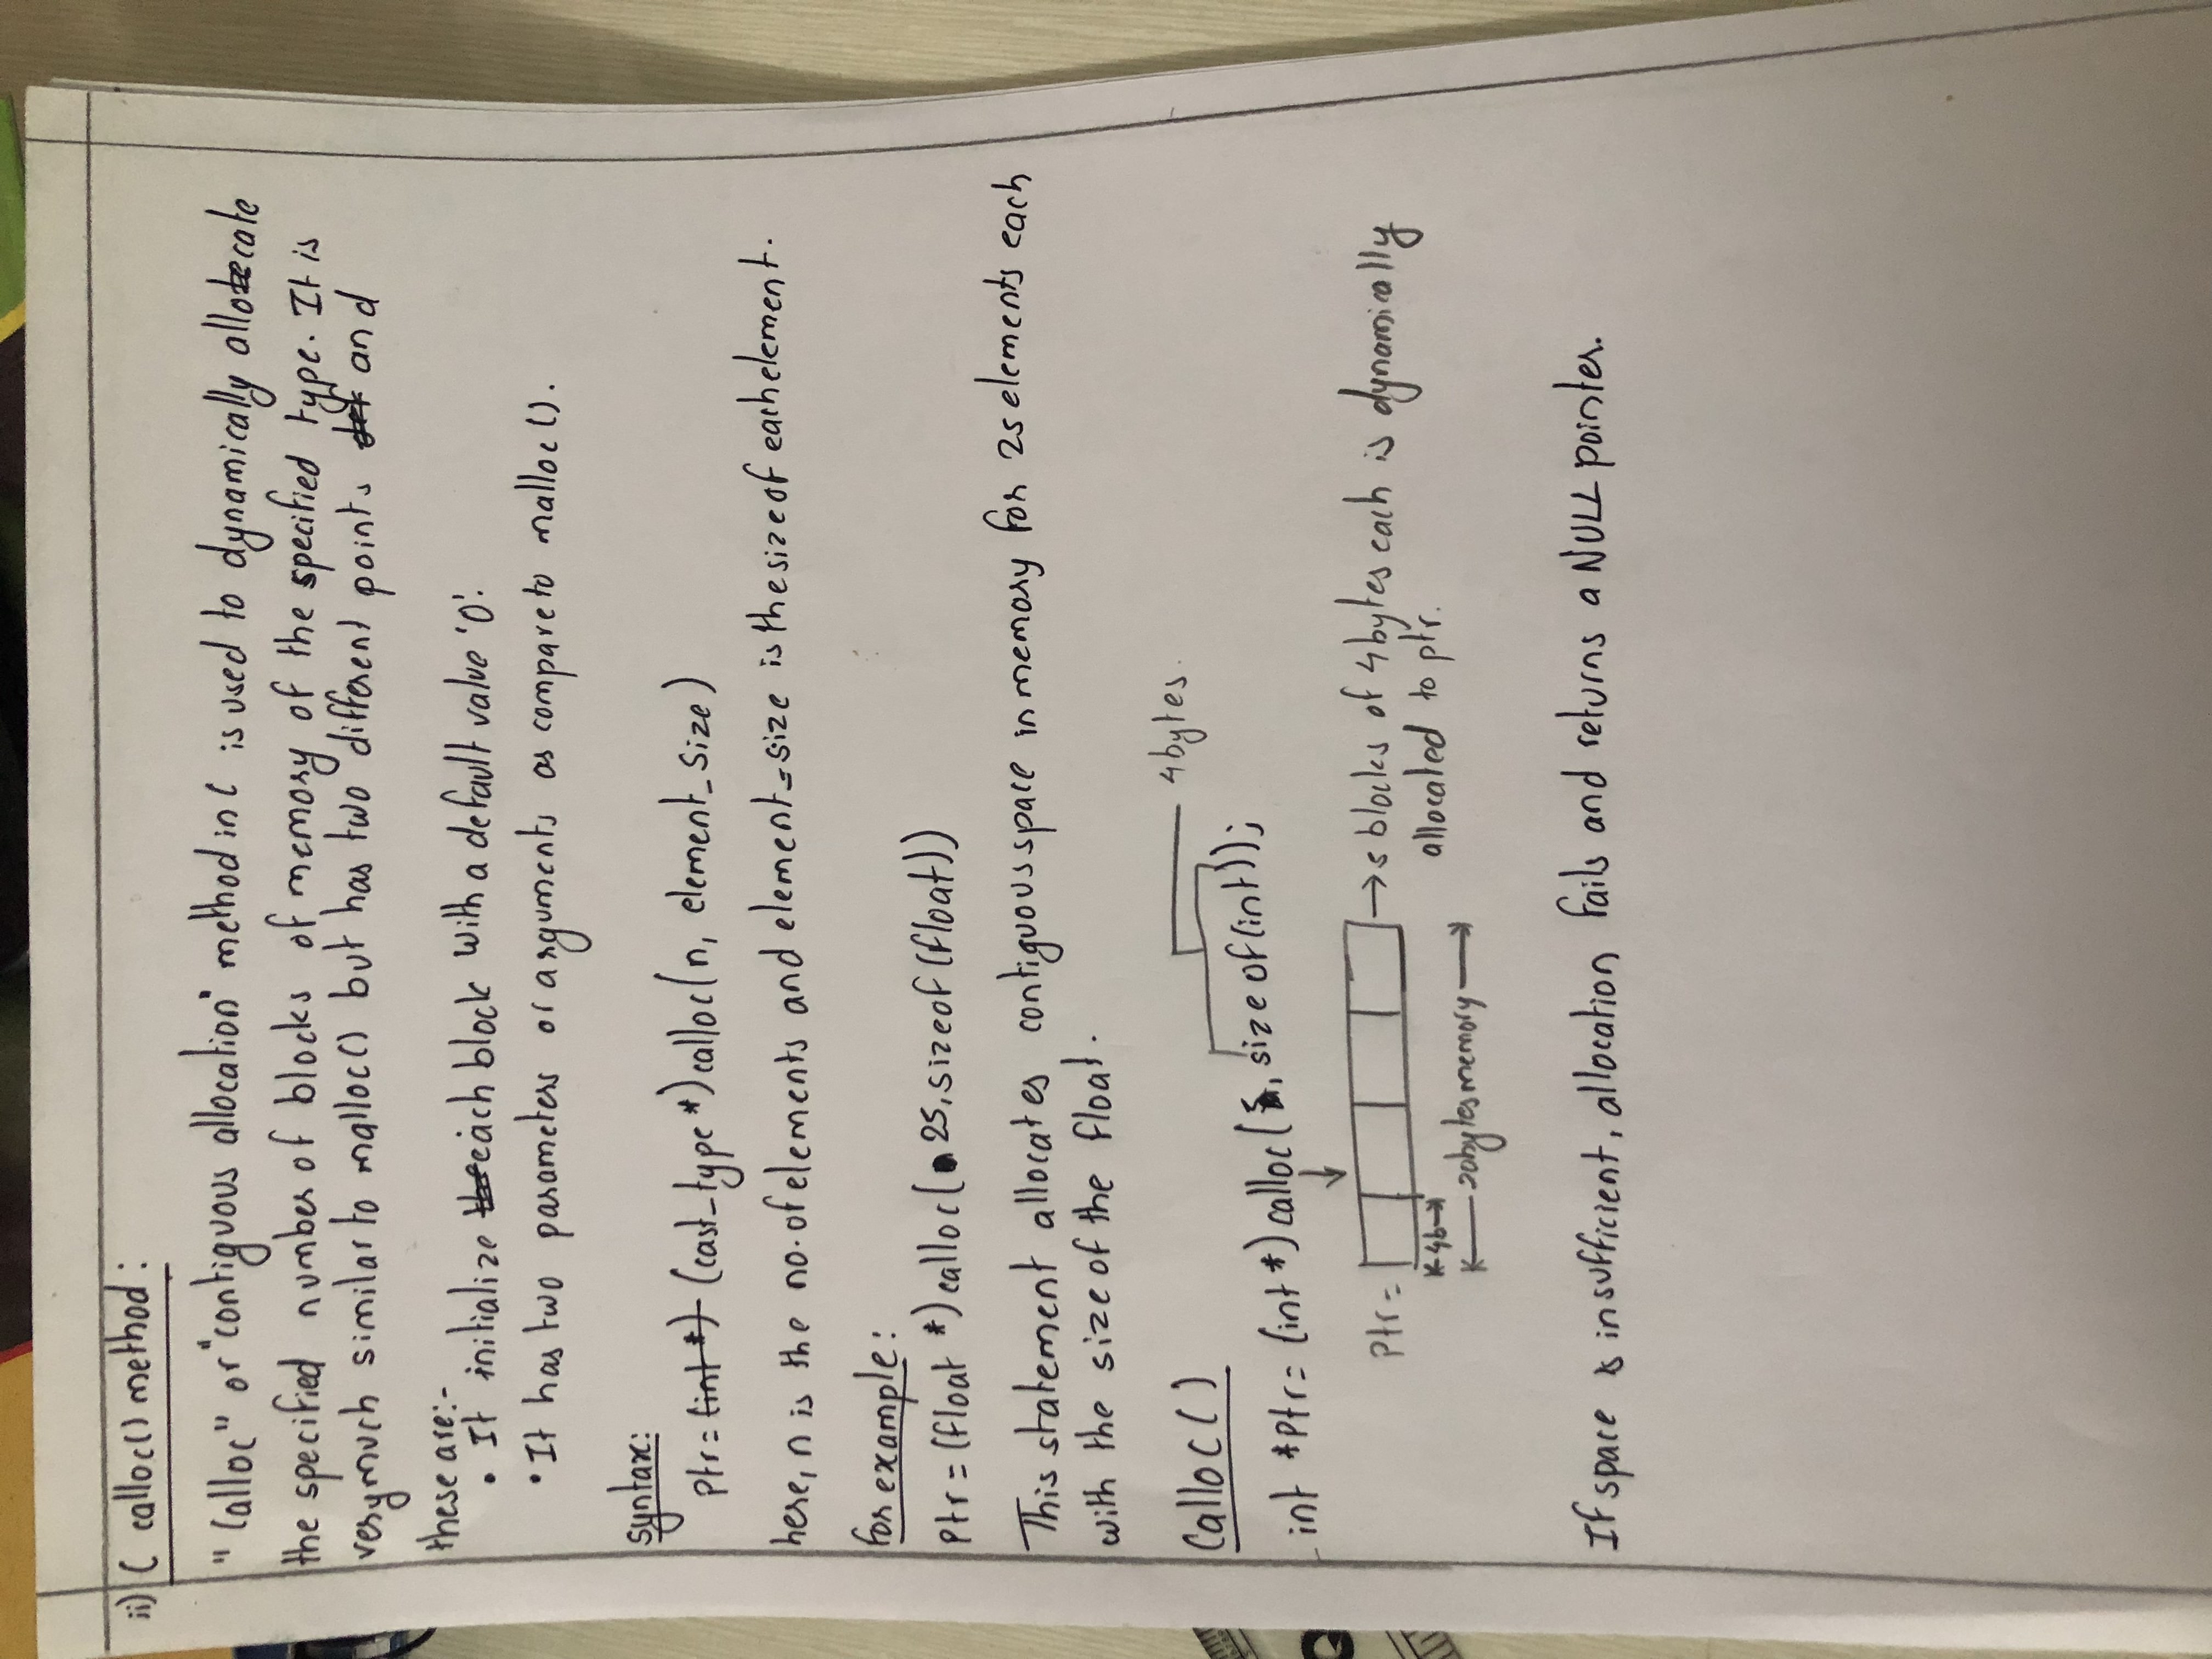 ii) C calloc() method:
"Calloc" or "contiguous allocation" method in C is used to dynamically allocate
the specified number of blocks of memory of the specified type. It is
very much similar to malloc() but has two different points and
these are:-
• It initialize each block with a default value '0'.
• It has two parameters or arguments as compare to malloc().
Syntax:
Ptr = (int*) (cast_type*) calloc(n, element_size)
here, n is the no. of elements and element_size is the size of each element.
for example:
Ptr = (float *) calloc(25, sizeof(float))
This statement allocates contiguous space in memory for 25 elements each
with the size of the float.
Calloc()
4 bytes.
int *ptr = (int *) calloc(5, sizeof(int));
Ptr =
→ 5 blocks of 4 bytes each is dynamically
allocated to ptr.
4b
20bytes memory
If space is insufficient, allocation fails and returns a NULL pointer.